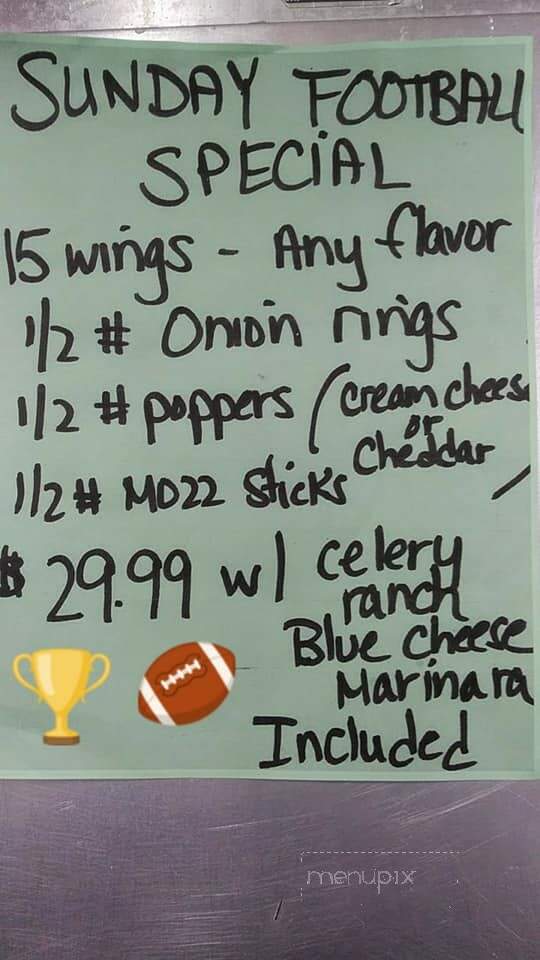 SUNDAY FOOTBALL
SPECIAL
15 wings - Any flavor
1/2 # Onion rings
1/2 # poppers (cream cheese
or
Cheddar
1/2 # MOZZ Sticks
$29.99 w/ celery
ranch
Blue Cheese
Marinara
Included
menupix